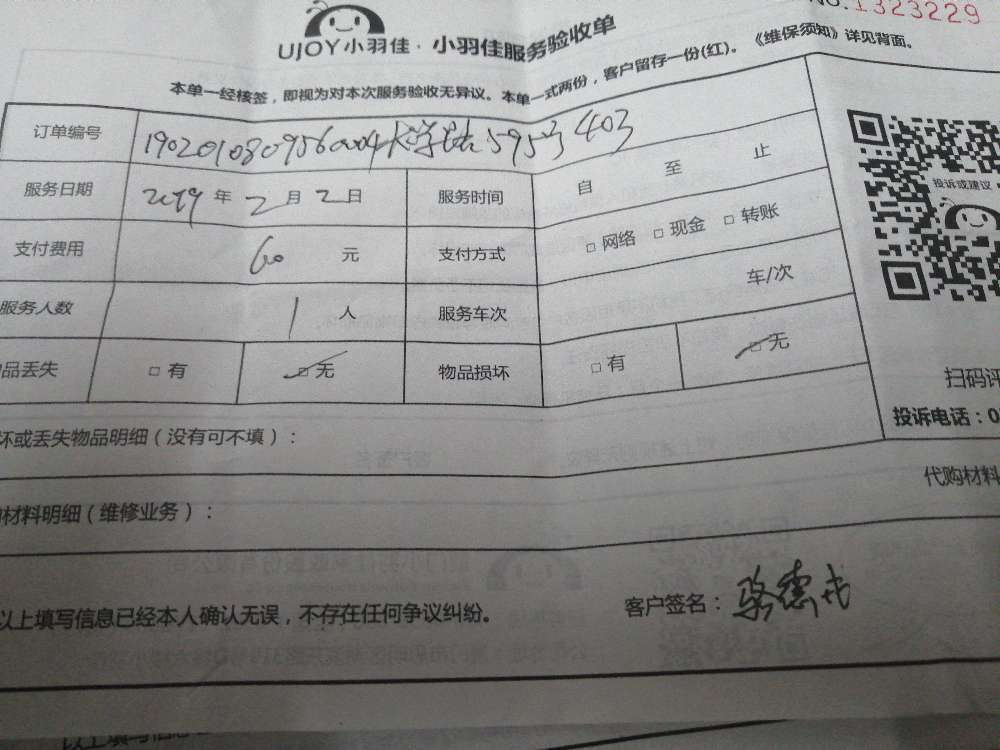 NO.1323229
UJOY小羽佳·小羽佳服务验收单
本单一经核签，即视为对本次服务验收无异议。本单一式两份，客户留存一份(红)。《维保须知》详见背面。
订单编号 190201080956004大学路595号403
服务日期 2019年2月2日 服务时间 自 至 止
投诉或建议
支付费用 60元 支付方式 □网络 □现金 □转账
服务人数 1人 服务车次 车/次
品丢失 □有 ☑无 物品损坏 □有 ☑无
扫码评
投诉电话：0
坏或丢失物品明细（没有可不填）：
代购材料
材料明细（维修业务）：
以上填写信息已经本人确认无误，不存在任何争议纠纷。 客户签名：